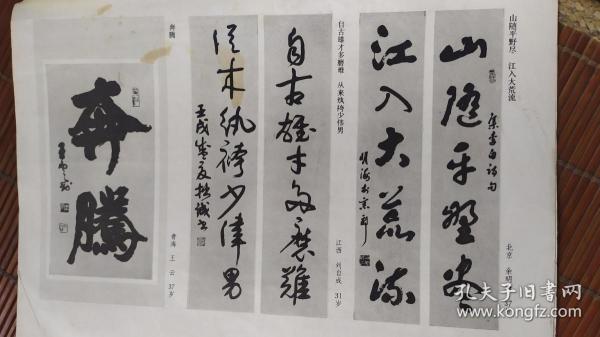 山随平野尽 江入大荒流
山随平野尽
集李白诗句
江入大荒流
明海书京郊
北京 余明
37
自古雄才多磨难 从来纨袴少伟男
自古雄才多磨难
从来纨袴少伟男
壬戌盛夏拙诚书
江西 刘自成 31岁
奔腾
奔腾
王云书
青海 王云 37岁
孔夫子旧书网
www.kongfz.com